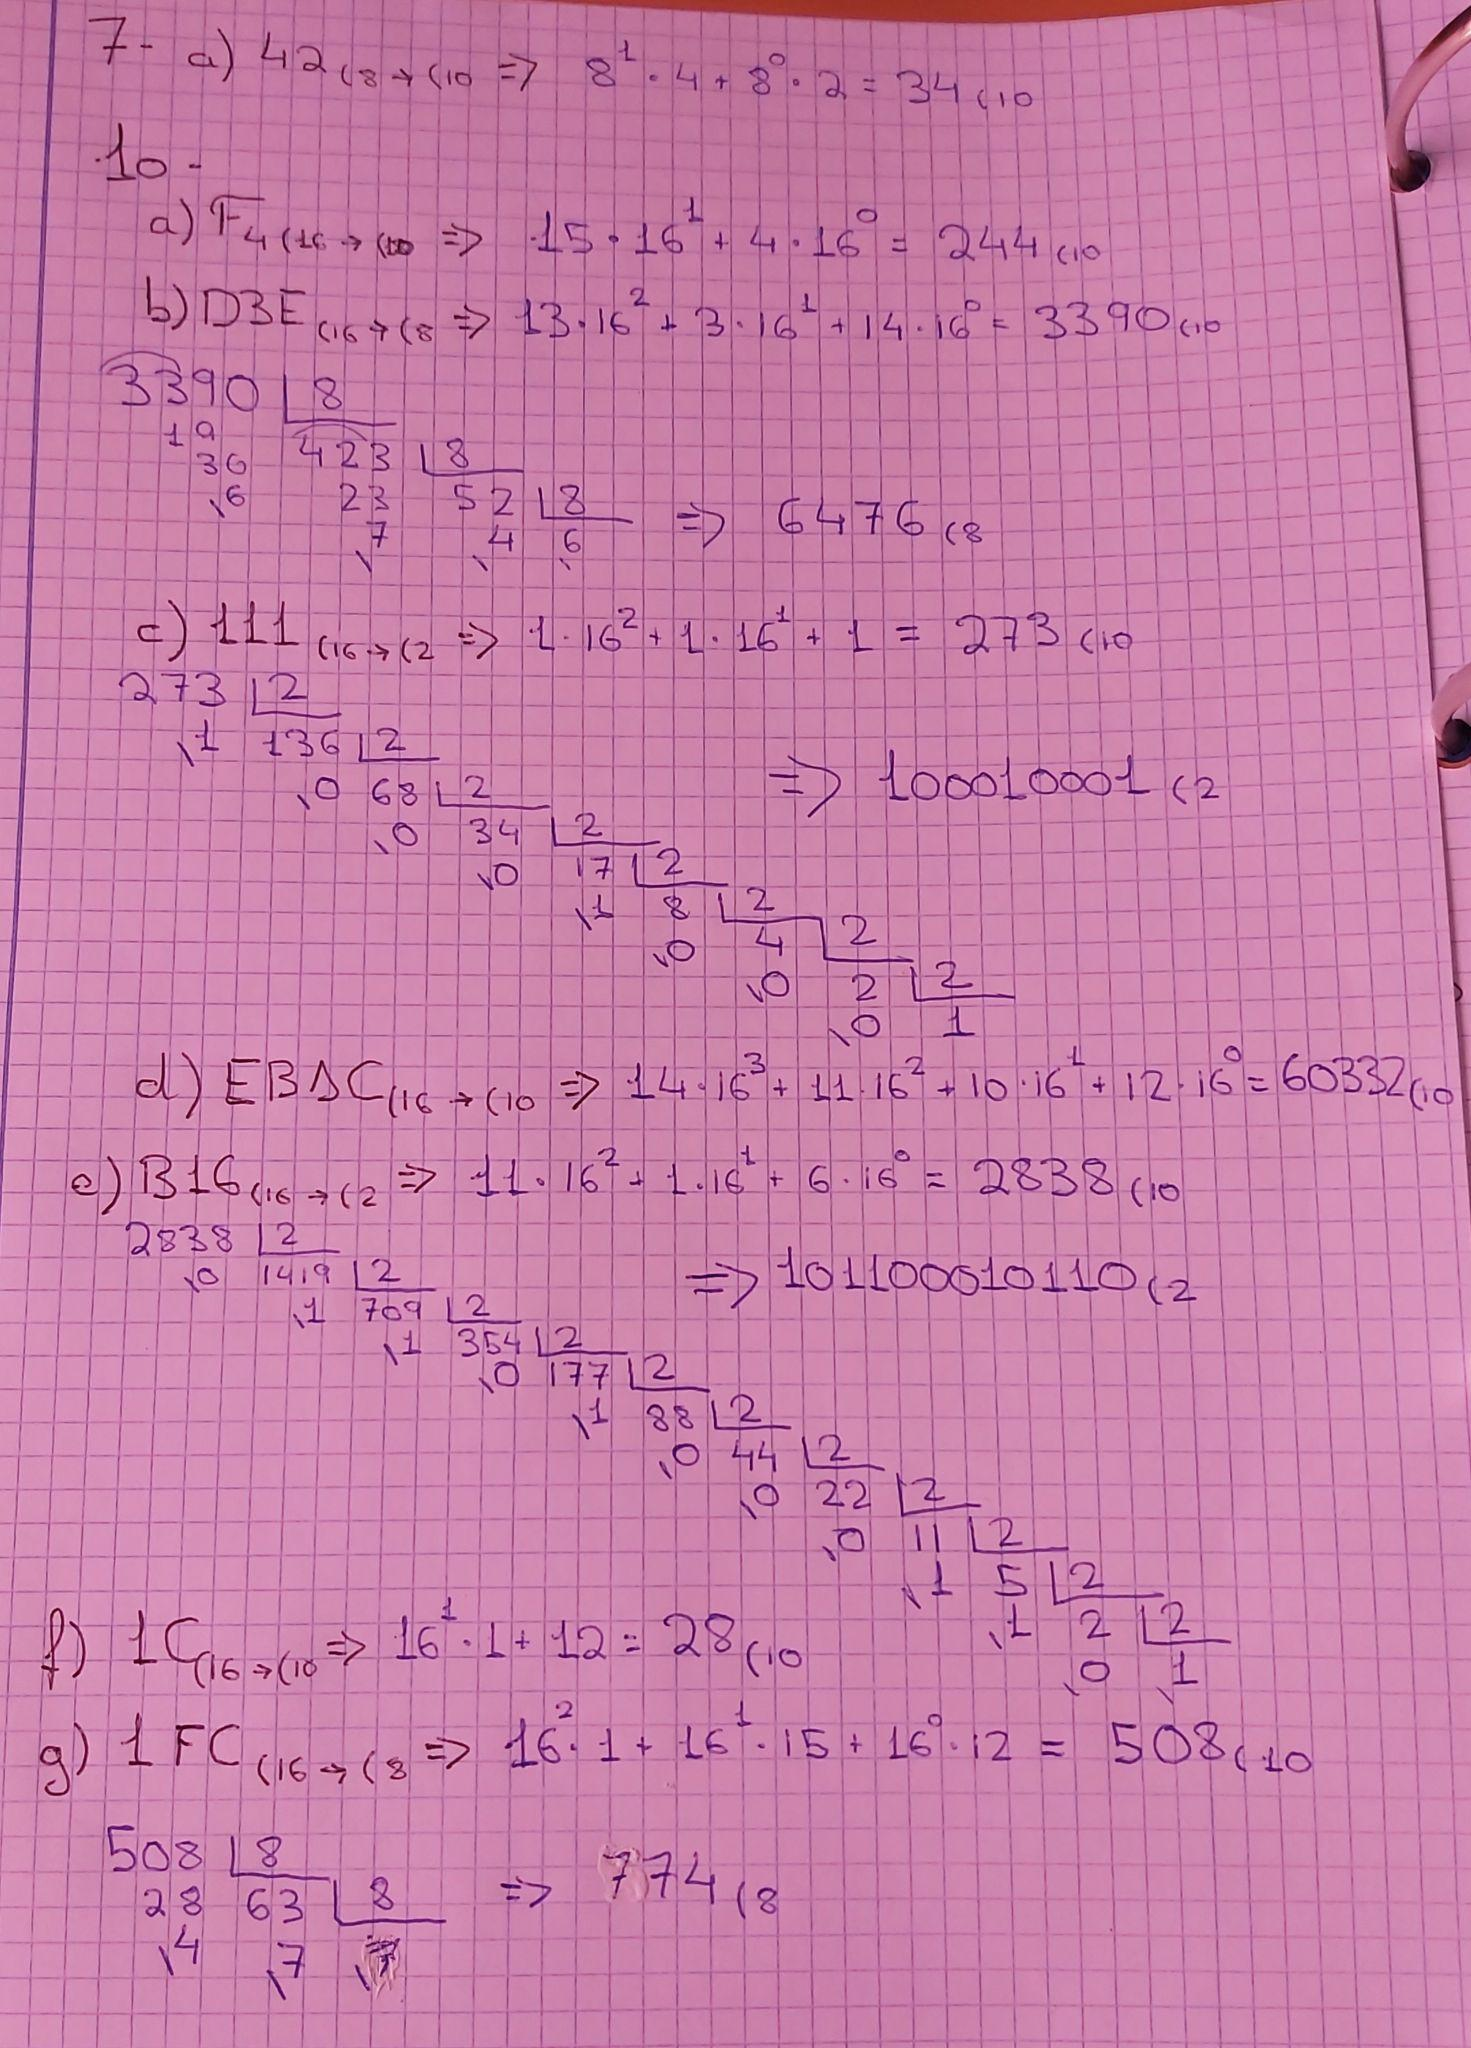 7- a) 42(8→(10 => 8¹·4+8⁰·2=34(10
10-
a) F4(16→(10 => 15·16¹+4·16⁰=244(10
b) D3E(16→(8 => 13·16²+3·16¹+14·16⁰=3390(10
3390 |8
19 423 |8
36
6 23 52 |8 => 6476(8
7 4 6
c) 111(16→(2 => 1·16²+1·16¹+1=273(10
273 |2
1 136 |2
0 68 |2 => 100010001(2
0 34 |2
0 17 |2
1 8 |2
0 4 |2
0 2 |2
0 1
d) EBAC(16→(10 => 14·16³+11·16²+10·16¹+12·16⁰=60332(10
e) B16(16→(2 => 11·16²+1·16¹+6·16⁰=2838(10
2838 |2
0 1419 |2 => 101100010110(2
1 709 |2
1 354 |2
0 177 |2
1 88 |2
0 44 |2
0 22 |2
0 11 |2
1 5 |2
1 2 |2
0 1
f) 1C(16→(10 => 16¹·1+12=28(10
g) 1FC(16→(8 => 16²·1+16¹·15+16⁰·12=508(10
508 |8
28 63 |8 => 774(8
4 7 7